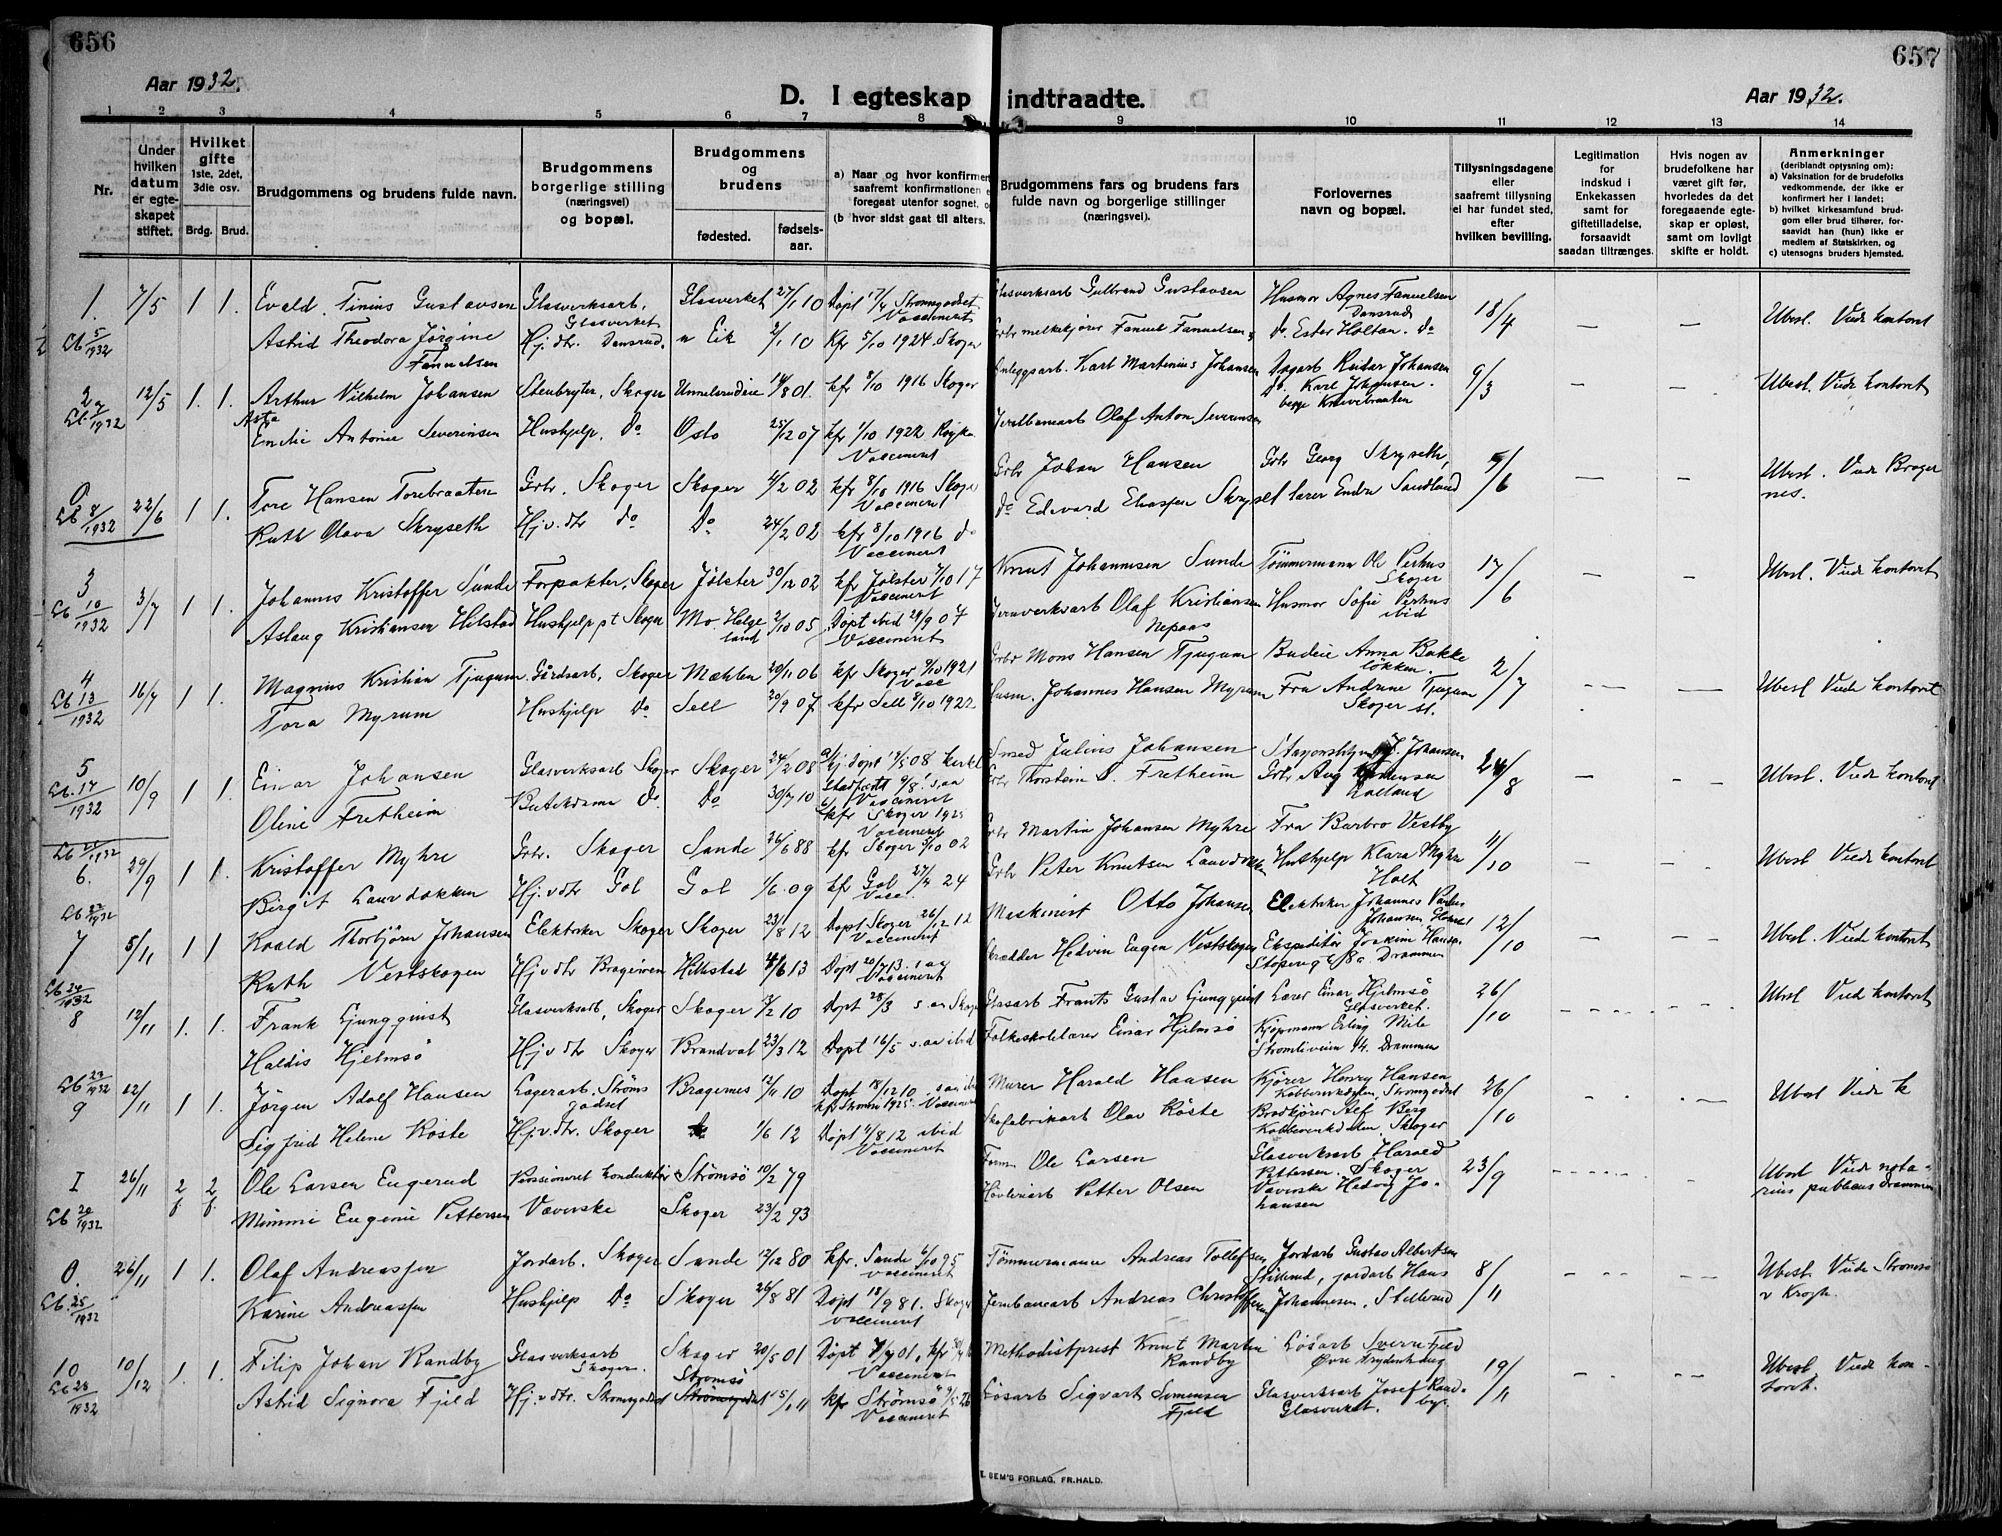 656
657
Aar 1932.
D. I egteskap indtraadte.
Aar 1932.
1 2 3 4 5 6 7 8 9 10 11 12 13 14
Nr.
Under hvilken datum er egteskapet stiftet.
Hvilket gifte 1ste, 2det, 3die osv.
Brdg. Brud.
Brudgommens og brudens fulde navn.
Brudgommens borgerlige stilling (næringsvei) og bopæl.
Brudgommens og brudens
fødested. fødselsaar.
a) Naar og hvor konfirmert
saafremt konfirmationen
foregaat utenfor sognet,
(b hvor sidst gaat til alters.
Brudgommens fars og brudens fars fulde navn og borgerlige stillinger (næringsvei).
Forlovernes navn og bopæl.
Tillysningsdagene eller saafremt tillysning ei har fundet sted, efter hvilken bevilling.
Legitimation for indskud i Enkekassen samt for giftetilladelse, forsaavidt saadan tiltrænges.
Hvis nogen av brudefolkene har været gift før, hvorledes da det foregaaende egteskap er opløst, samt om lovligt skifte er holdt.
Anmerkninger
(deriblandt optysning om):
a) Vaksination for de brudefolks vedkommende, der ikke er konfirmert her i landet:
b) hvilket kirkesamfund brudgom eller brud tilhører, forsaavidt han (hun) ikke er medlem af Statskirken, og
c) utensogns bruders hjemsted.
1. 7/5 1 1. Evald Tinius Gustavsen Glasverksarb. Glasverket 27/1 10 Døpt 17/4 Strømsgodset Vaccineret Glasverksarb Gulbrand Gustavsen Husmor Agnes Fanuelsen Dansrud 18/4 — — Ubesl. Viede kontoret
Lb 5/1932 Astrid Theodora Jørgine Fanuelsen Hj. dtr. Dansrud. Eik 2/1 10 Kfr 5/10 1924 Skoger Grbr melkekjører Fanuel Fanuelsen Do Ester Holtan. do
2 12/5 1. 1. Arthur Vilhelm Johansen Stenbryter, Skoger 14/8 01. kfr 8/10 1916 Skoger Anlegsarb. Karl Martenius Johansen Dagarb Reidar Johansen 9/3 — — Ubesl. Viede kontoret
Lb 7/1932 Asta Emilie Antonie Severinsen Hushjelp. do Oslo 25/12 07 kfr 1/10 1922 Røyken Vaccineret Jernbanearb Olaf Anton Severinsen do. Karl Johansen. begge Knivebraaten
0 22/6 1 1. Tore Hansen Torebraaten Grbr. Skoger Skoger 4/2 02 kfr 8/10 1916 Skoger Vaccineret Grbr Johan Hansen Grbr Georg Skryseth, 5/6 — — Ubesl. Viede Bragernes.
Lb 8/1932 Ruth Olava Skryseth Hj.v.dtr do Do 24/2 02 kfr 8/10 1916 do Vaccineret do Edvard Eliassen Skryset lærer Endre Sandland
3 3/7 1 1. Johannes Kristoffer Sunde Forpakter, Skoger Jølster 30/12 02 kfr Jølster 7/10 17 Vaccineret Knut Johannesen Sunde Tømmermann Ole Verhus Skoger 17/6 — — Ubesl. Viede kontoret
Lb 10/1932 Aslaug Kristiansen Hilstad Hushjelp pt Skoger Mo Helgeland 2/10 05 Døpt ibid 29/9 07 Vaccineret Jernverksarb Olaf Kristiansen Nepaas Husmor Sofie Verhus ibid
4 16/7 1 1. Magnus Kristian Tjugum Gårdsarb, Skoger Mæhlen 20/1 06 kfr Skoger 9/10 1921 Vacc Grbr Mons Hansen Tjugum Budeie Anna Bakkeløkken. 2/7 — — Ubesl Viede kontoret
Lb 13/1932 Tora Myrum Hushjelp Do Sell 20/9 07 kfr Sell 8/10 1922 Husm. Johannes Hansen Myrum Fra Andrine Tjugum Skoger st.
5 10/9 1 1. Einar Johansen Glasverksarb Skoger Skoger 24/2 08 Smed Julius Johansen J. Johansen 24/8 — — Ubesl. Viede kontoret
Lb. 17/1932 Oline Fretheim Butikdame Do. Do 30/7 10 kfr. Skoger 1925 Vaccineret Grbr Thorstein O. Fretheim Grbr Aug
Lb 21/1932
6. 29/9 1 1 Kristoffer Myhre Grbr. Skoger Sande 26/6 88 kfr Skoger 5/10 02 Grbr Martin Johansen Myhre Fra Barbro Vestby 11/10 — — Ubesl Viede kontoret
Birgit Laurdokken Hj.v.dtr Gol Gol 1/6. 09 kfr Gol 27/7 24 Vacc. Grbr Peter Knutsen Hushjelp Klara Myhre Holt
Lb 22/1932
7 5/11 1 1 Roald Thorbjørn Johansen Elektriker Skoger Skoger 23/8 12 Døpt Skoger 26/12 12 Vaccineret Maskinist Otto Johansen Elektriker Johannes 12/10 — — Ubesl. Viede kontoret
Ruth Vestskogen Hj v dtr Bragernes Hillestad 4/6 13 Døpt 20/7 13. Vaccineret Skrædder Hedvin Eugen Vestskogen Ekspeditør Joakim Hansen Drammen
Lb 24/1932
8 12/11 1. 1. Frank Ljungquist Glasverksarb, Skoger Skoger 7/2 10 Døpt 28/3 s. aa Skoger Glasarb Frants Gustav Ljungquist Lærer Einar Hjelmsø Glasverket. 26/10 Ubesl Vied kontoret
Haldis Hjelmsø Hj v dtr Skoger Brandval 23/3 12 Døpt 16/5 s. aa ibid Folkeskolelærer Einar Hjelmsø Kjøpmann Erling Mile Strømliveien 14. Drammen
Lb 23/1932
9 12/11 1 1. Jørgen Adolf Hansen Lagerarb. Strømsgodset Bragernes 12/11 10 Døpt 18/12 10 Murer Harald Hansen Kjører Henry Hansen Strømsgodset 26/10 Ubesl Viede k
Sigfrid Helene Røste Hj.v.dtr. Skoger 1/6 12 Døpt 4/8 12 ibid Vaccineret Skofabrikarb Olav Røste Brødkjører Alf Berg Skoger
I 26/11 2f. 2f. Ole Larsen Eugerud Pensioneret konduktør Strømsø 10/2 79 Form Ole Larsen Glasverksarb Harald Pettersen. Skoger 23/9 Ubesl Viede notarius publicus Drammen
Lb 20/1932 Mimmi Eugenie Pettersen Væverske Skoger 23/2 93 Høvleriarb Petter Olsen Væverske Hedvig Johansen
0. 26/11 1 1. Olaf Andreassen Jordarb. Skoger Sande 12/12 80 kfr. Sande 6/10 95 vaccineret Tømmermann Andreas Tollefsen Jordarb Gustav Albertsen 8/11 Ubesl Viede Strømsø v Krogh.
Lb. 25/1932 Karine Andreassen Hushjelp Do Skoger 26/8 81 Døpt 18/9 81. Skoger vaccineret Jernbanearb Andreas Christoffersen jordarb Hans Johannesen, Stillerud
10 10/12 1. 1. Filip Johan Randby Glasverksarb Skoger. Skoger 20/5 01 Vaccineret Methodistprest Knut Martin Randby Løsarb Sverre Fjeld 19/11 Ubesl Viede kontoret.
Lb 28/1932 Astrid Signora Fjeld Hj. v dtr. Strømsgodset Strømsø 15/1 11 kfr Strømsø Vaccineret Løsarb Sigvart Simensen Fjeld Glasverksarb Josef Randby. Glasverket.
E. SEM'S FORLAG, FR.HALD.